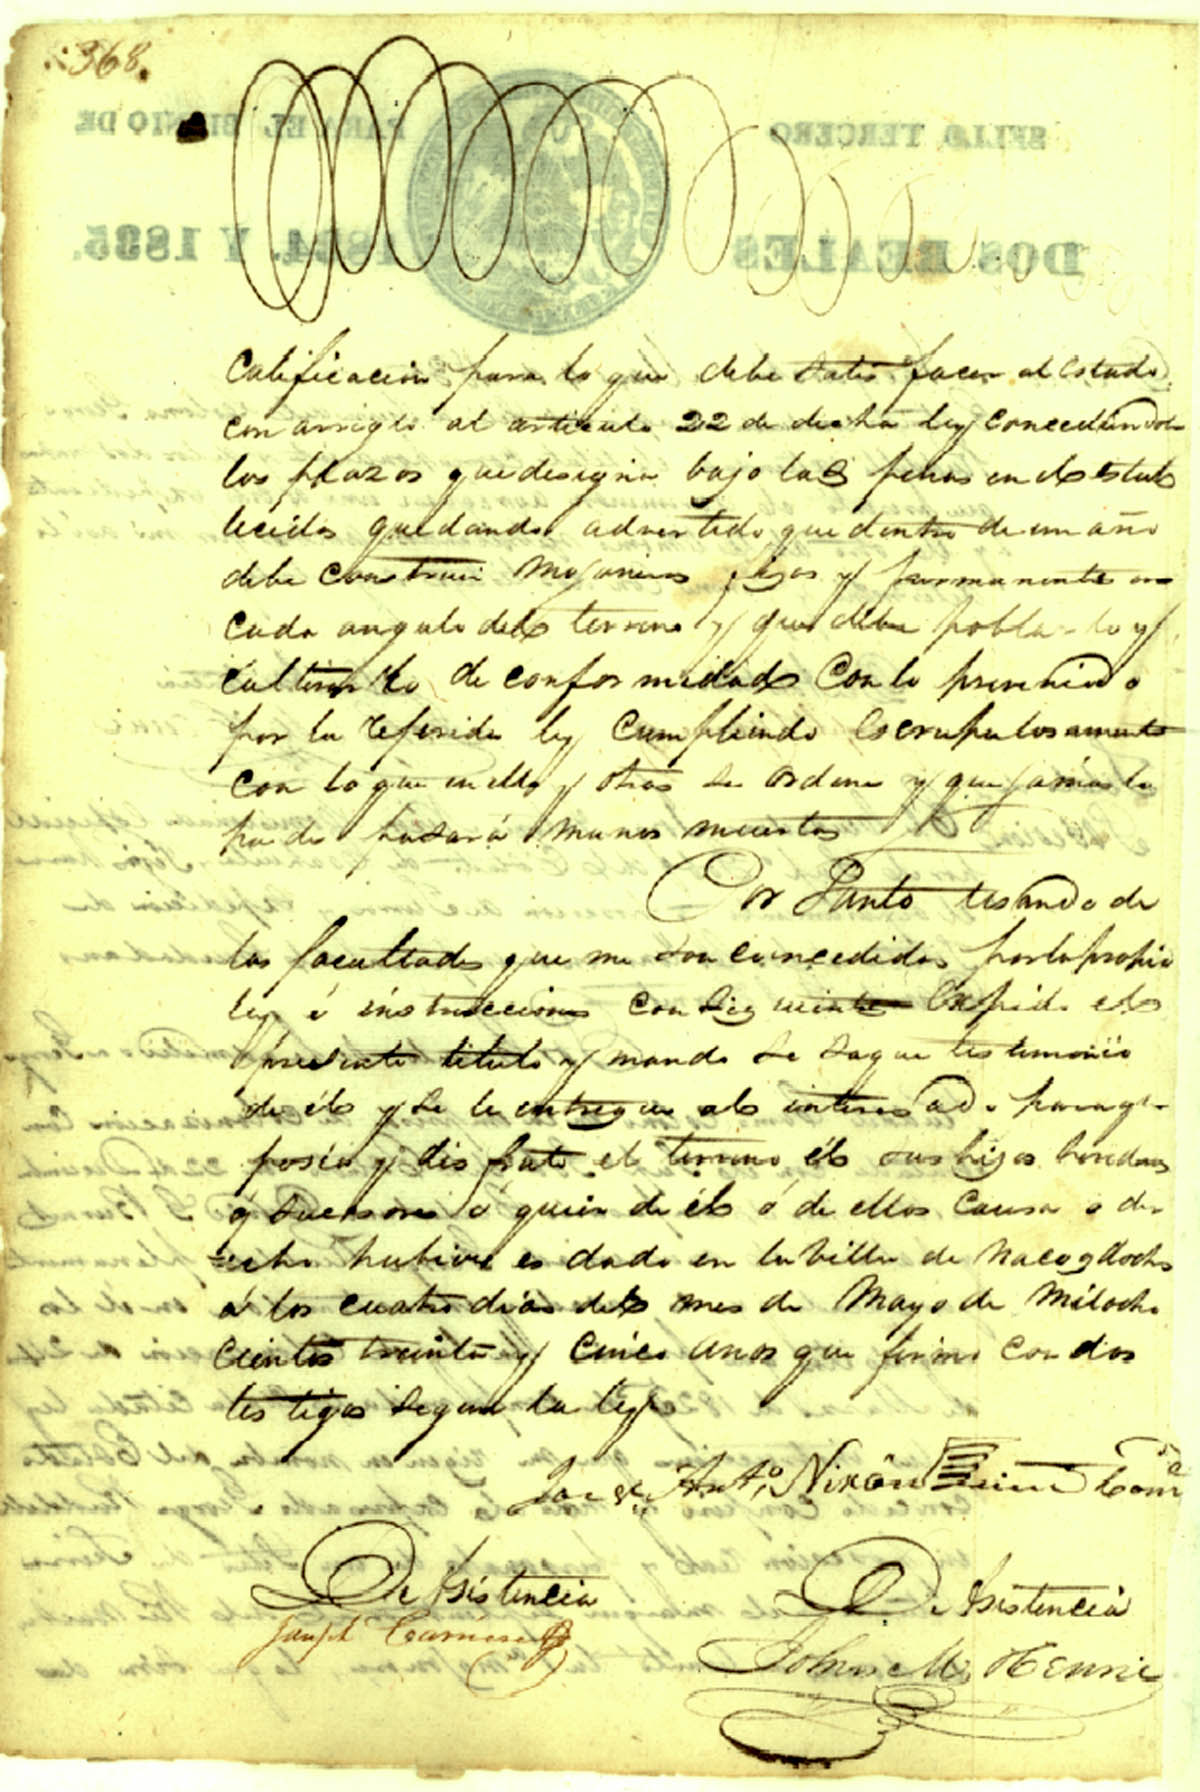 368.
SELLO TERCERO PARA EL BIENIO DE
DOS REALES 1834. Y 1835.
Calificacion para lo que debe satis facer al Estado
con arreglo al articulo 22 de dicha ley concediendole
los plazos que designa bajo las penas en el estab
lecidas quedando advertido que dentro de un año
debe construir mojoneras fijas y permanentes en
cada angulo del terreno y que debe poblarlo y
cultivarlo de conformidad con lo prevenido
por la referida ley cumpliendo escrupulosamente
con lo que en ella y otras se ordene y que jamas lo
puede pasar á manos muertas
Por Tanto usando de
las facultades que me son concedidas por la propia
ley é instrucciones consiguiente Expido el
presente titulo y mando se saque testimonio
de él y se le entregue al interesado para que
posea y disfrute el terreno él sus hijos herederos
ó sucesores ó quien de él ó de ellos causa o de-
recho hubiere es dado en la Villa de Nacogdoches
á los cuatro dias del mes de Mayo de Mil ocho
cientos treinta y cinco años que firmo con dos
testigos segun la ley
Jorge Anto. Nixon Com
De Asistencia De Asistencia
John Mc Henrie